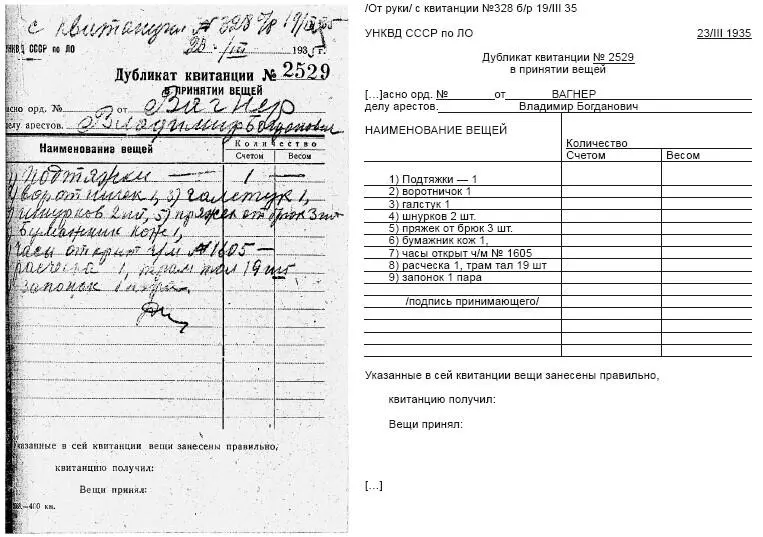 с квитанции № 328 б/р 19/III 35
УНКВД СССР по ЛО
23/III 1935 г.
Дубликат квитанции № 2529
В ПРИНЯТИИ ВЕЩЕЙ
асно орд. № от Вагнер
делу арестов. Владимир Богданович
Наименование вещей
Количество
Счетом Весом
Подтяжки — 1 —
воротничек 1, 3) галстук 1,
шнурков 2 шт, 5) пряжек от брюк 3 шт
бумажник кож 1,
часы открыт ч/м № 1605 —
расческа 1, трам тал 19 шт
запонок 1 пара.
Указанные в сей квитанции вещи занесены правильно,
квитанцию получил:
Вещи принял:
—400 кн.
/От руки/ с квитанции №328 б/р 19/III 35
УНКВД СССР по ЛО 23/III 1935
Дубликат квитанции № 2529
в принятии вещей
[…]асно орд. № от ВАГНЕР
делу арестов. Владимир Богданович
НАИМЕНОВАНИЕ ВЕЩЕЙ
Количество
Счетом Весом
1) Подтяжки — 1
2) воротничок 1
3) галстук 1
4) шнурков 2 шт.
5) пряжек от брюк 3 шт.
6) бумажник кож 1,
7) часы открыт ч/м № 1605
8) расческа 1, трам тал 19 шт
9) запонок 1 пара
/подпись принимающего/
Указанные в сей квитанции вещи занесены правильно,
квитанцию получил:
Вещи принял:
[…]